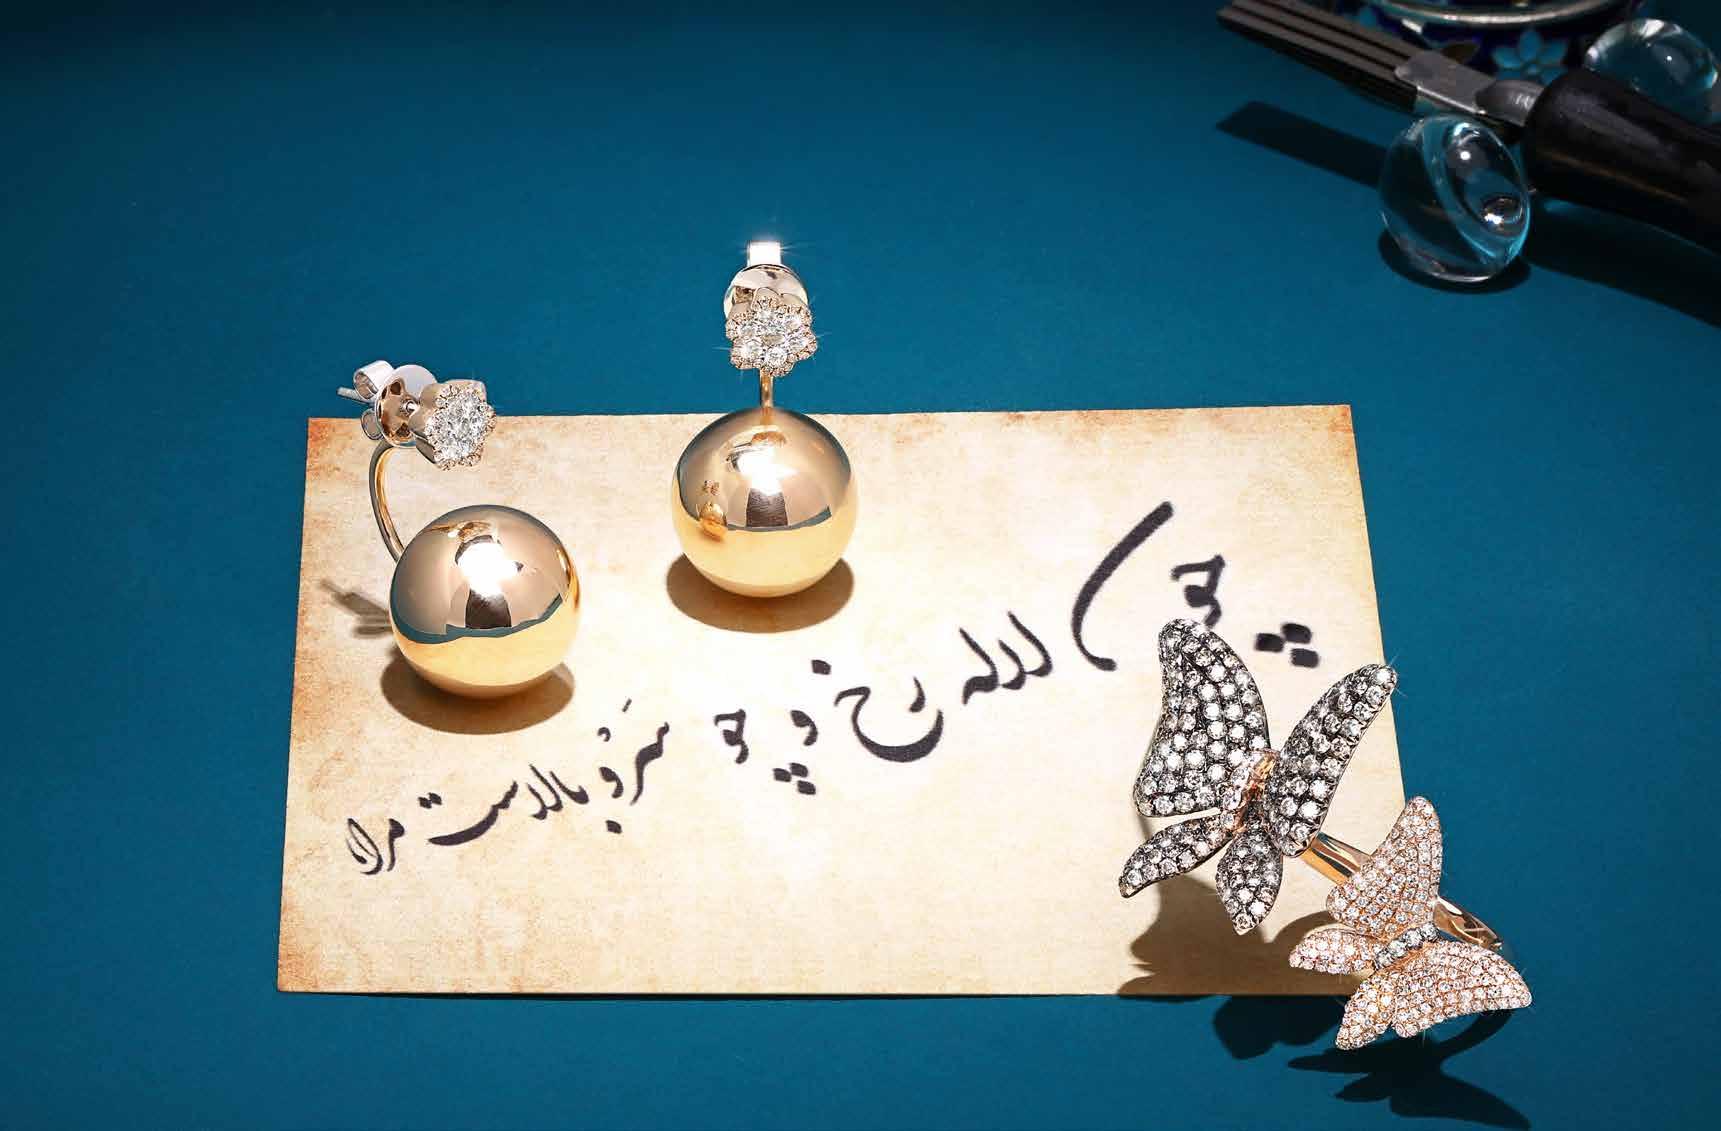 چون لاله رخ و چو سَرْو بالاست مرا